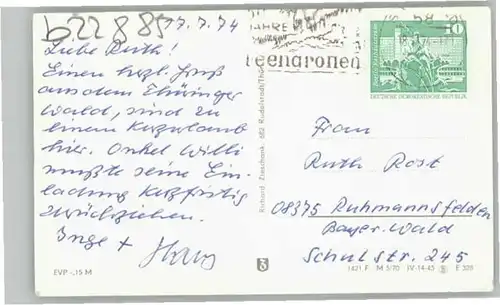 b22885
17.7.74
Liebe Ruth!
Einen herzl. Gruß
aus dem Thüringer
Wald, sind zu
einem Kurzurlaub
hier. Onkel Willi
mußte seine Ein-
ladung kurzfristig
zurückziehen.
Inge + Hans
EVP -,15 M
Richard Zieschank, 682 Rudolstadt/Thür.
JAHRE
10
DEUTSCHE DEMOKRATISCHE REPUBLIK
Frau
Ruth Rost
08375 Ruhmannsfelden
Bayer. Wald
Schulstr. 245
1421 F M 5/70 IV-14-45 E 328